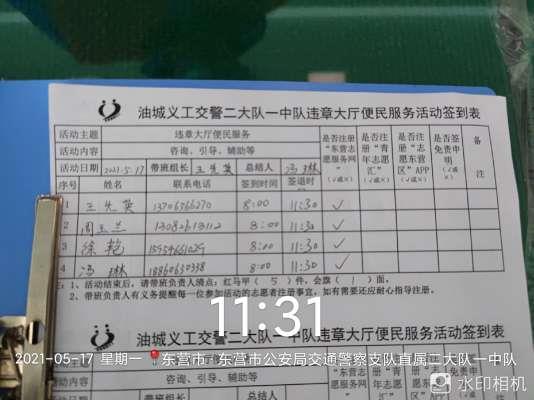 油城义工交警二大队一中队违章大厅便民服务活动签到表
活动主题 违章大厅便民服务
活动内容 咨询、引导、辅助等
活动日期 2021.5.17 带班组长 王先英 总结人 冯琳
是否注册“东营志愿服务网”（√或×） 是否注册“青年志愿汇”（√或×） 是否注册“志愿东营区”APP（√或×） 是否签免责申明（√或×） 备注
序号 姓名 联系电话 签到时间 签退时
1 王先英 8:00 11:30 √
2 周玉兰 8:00 11:30 √
3 徐艳 8:00 11:30 √
4 冯琳 8:00 11:30 √
注：1、活动结束后，请带班负责人清点：红马甲（5）件，会旗（1）面，
2、带班负责人有义务提醒每一位参加活动的志愿者注册事宜，如有需要还应耐心指导注册。
11:31
油城义工交警二大队一中队违章大厅便民服务活动签到表
2021-05-17 星期一 东营市·东营市公安局交通警察支队直属二大队一中队
活动内容 咨询、引导、辅助等
水印相机